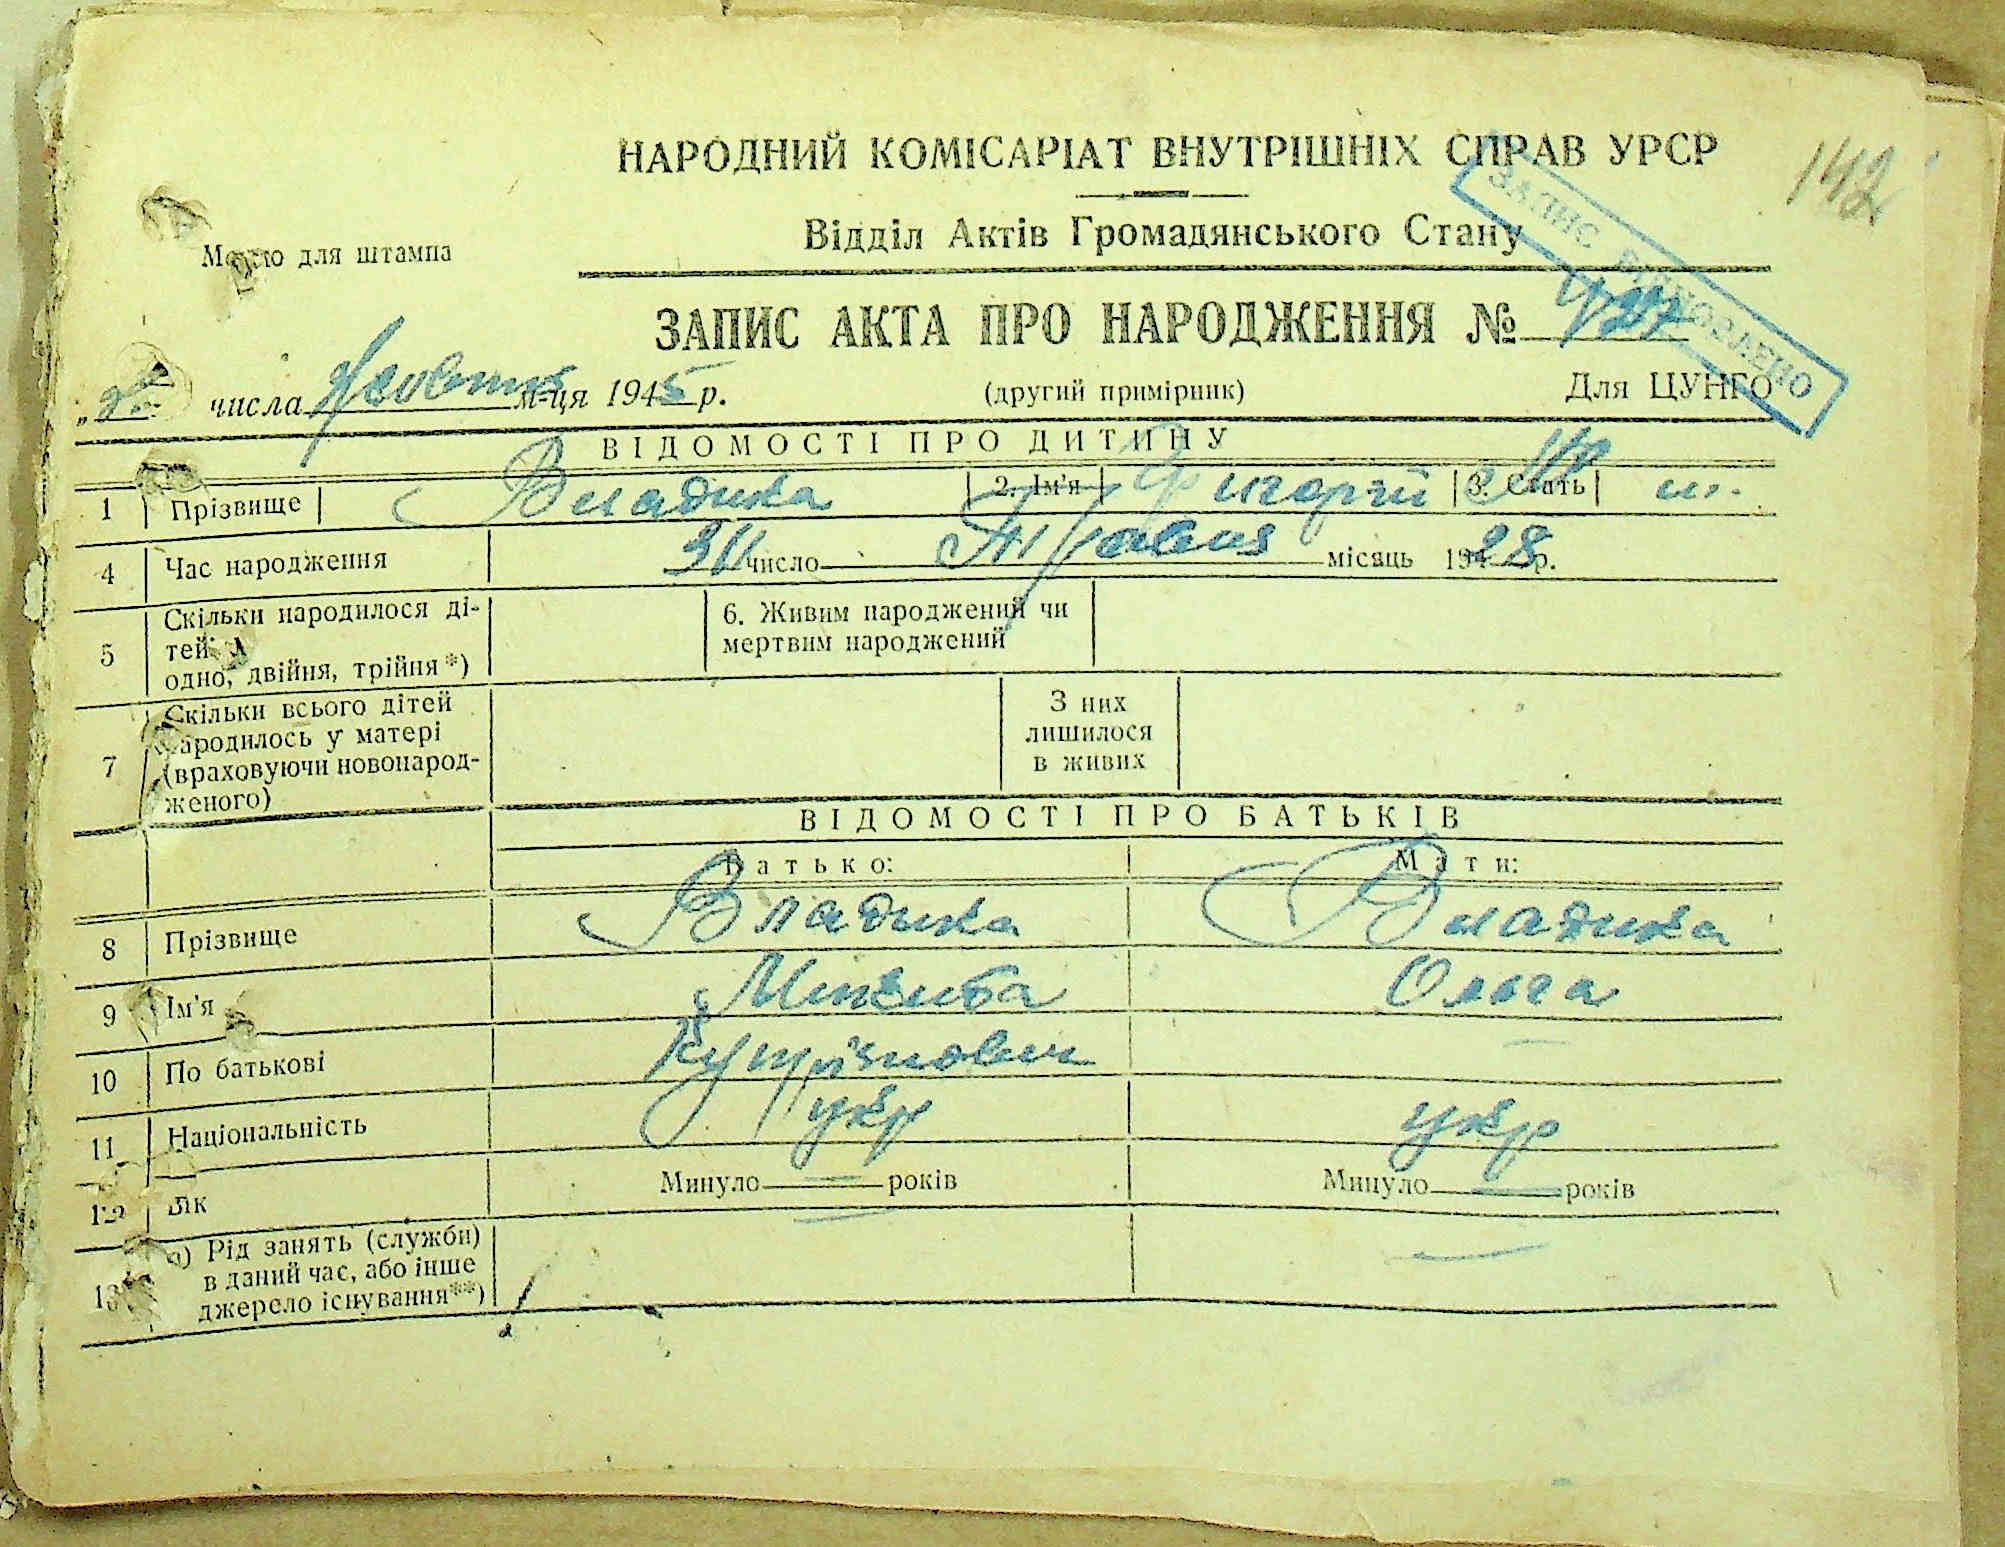 НАРОДНИЙ КОМІСАРІАТ ВНУТРІШНІХ СПРАВ УРСР
142
ЗАПИС ВІДНОВЛЕНО
Відділ Актів Громадянського Стану
Місце для штампа
ЗАПИС АКТА ПРО НАРОДЖЕННЯ №
числа Жовтня м-ця 1945 р. (другий примірник) Для ЦУНГО
ВІДОМОСТІ ПРО ДИТИНУ
1 Прізвище Владика 2. Ім'я Григорій 3. Стать
4 Час народження 31 число Травня місяць 1928 р.
5 Скільки народилося ді-
тей:
одно, двійня, трійня*)
6. Живим народжений чи
мертвим народжений
7 Скільки всього дітей
народилось у матері
(враховуючи новонарод-
женого)
З них
лишилося
в живих
ВІДОМОСТІ ПРО БАТЬКІВ
Батько: Мати:
8 Прізвище Владика Владика
9 Ім'я Микита Ольга
10 По батькові
11 Національність укр укр
12 Вік Минуло — років Минуло — років
13 а) Рід занять (служби)
в даний час, або інше
джерело існування**)